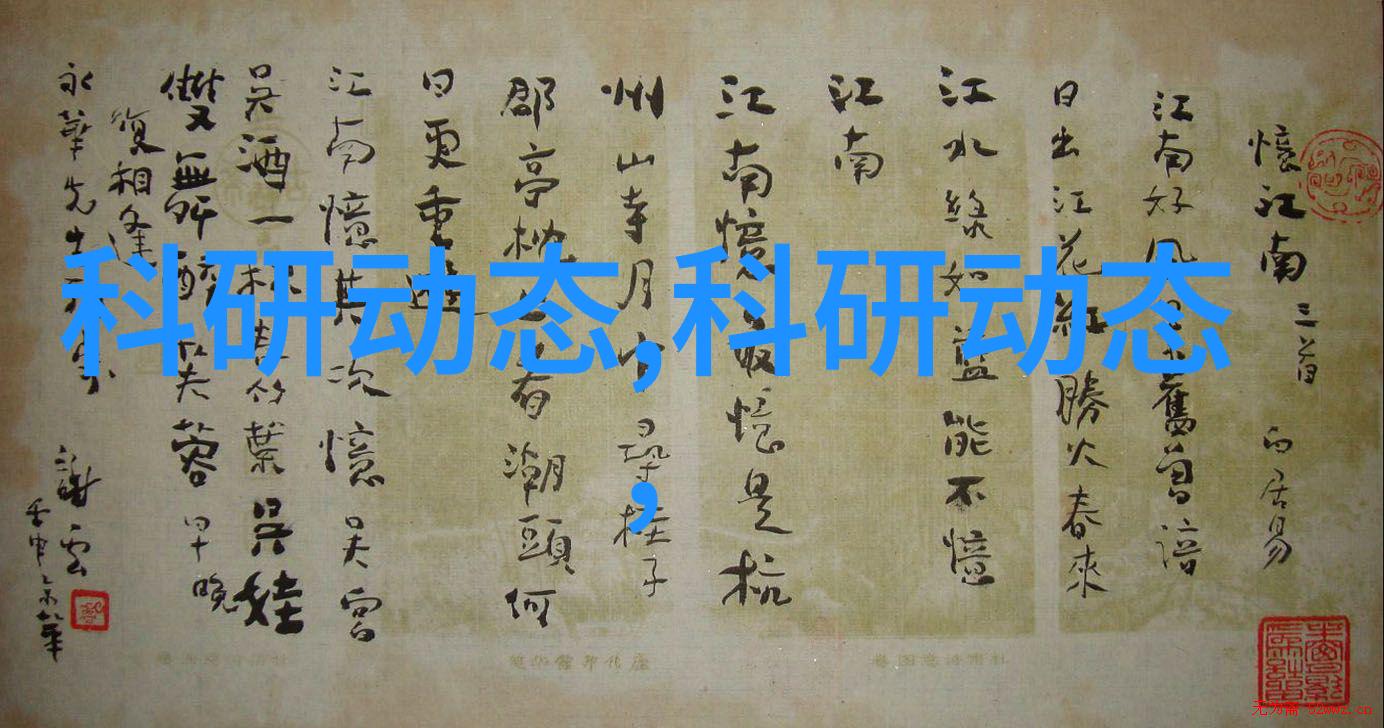 科研动态,科研动态
,
憶江南 三首 白居易
江南好風景舊曾諳
日出江花紅勝火春來
江水綠如藍能不憶
江南
江南憶最憶是杭
州山寺月中尋桂子
郡亭枕上看潮頭何
日更重遊
江南憶其次憶吳宮
吳酒一杯春竹葉吳娃
雙舞醉芙蓉早晚
復相逢
永華先生
謝雲
壬申京華
无为斋